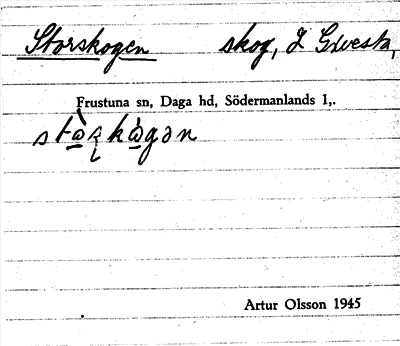 Storskogen skog, I Gresta,
Frustuna sn, Daga hd, Södermanlands l,.
Artur Olsson 1945